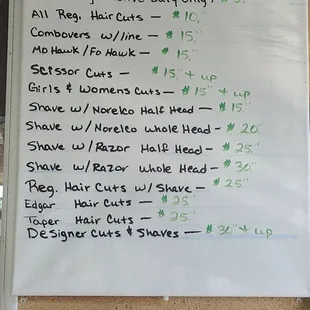 Only! $
All Reg. Hair Cuts — $10.
Combovers w/line — $15.
Mo Hawk / Fo Hawk — $15.
Scissor Cuts — $15 + up
Girls & Womens Cuts — $15 + up
Shave w/ Norelco Half Head — $15
Shave w/ Norelco Whole Head - $20
Shave w/ Razor Half Head — $25
Shave w/ Razor Whole Head — $30
Reg. Hair Cuts w/ Shave — $25
Edgar Hair Cuts — $25
Taper Hair Cuts — $25
Designer Cuts & Shaves — $30 + up